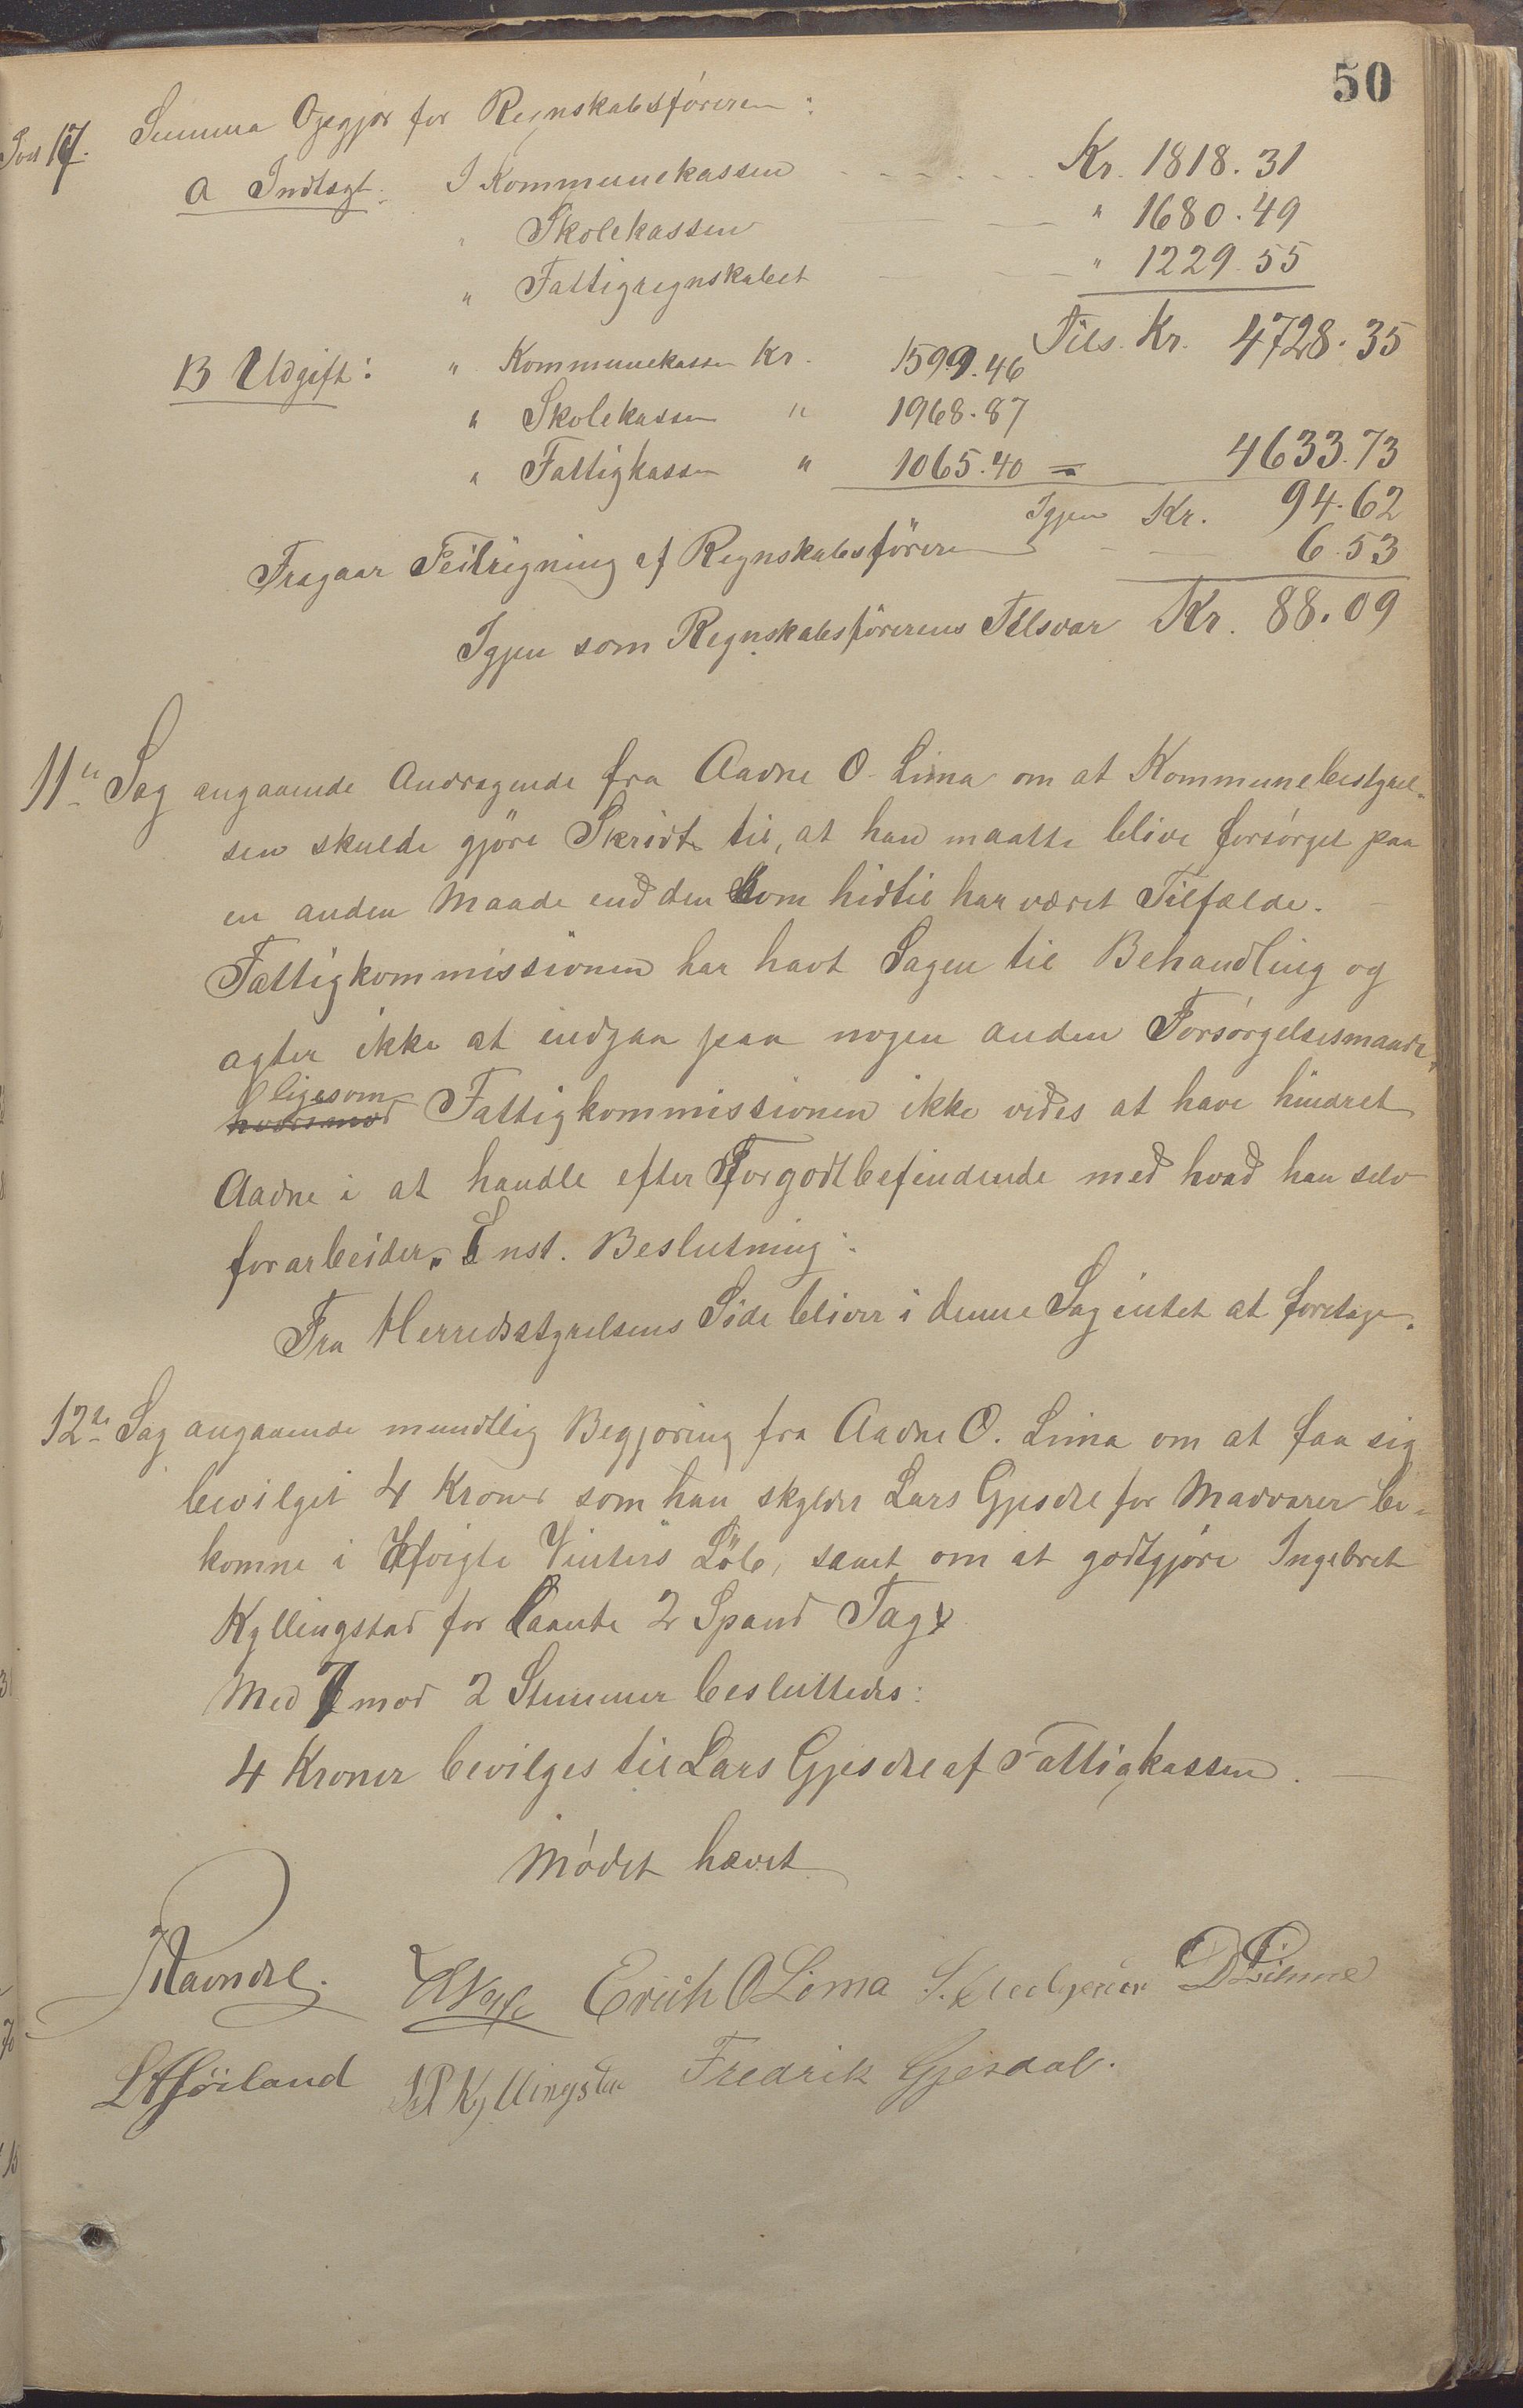 50
Post 17. Summa Opgjør for Regnskabsføreren:
a Indtægt. I Kommunekassen Kr. 1818.31
Skolekassen " 1680.49
" Fattigregnskabet " 1229.55
Tils. Kr. 4728.35
B Udgift: " Kommunekassen Kr. 1599.46
" Skolekassen " 1968.87
" Fattigkassen " 1065.40 = 4633.73
Igjen Kr. 94.62
Fragaar Feilrigning af Regnskabsføreren 6.53
Igjen som Regnskabsførerens Tilsvar Kr. 88.09
11te Sag angaaende Andragende fra Aadne O. Lima om at Kommunebestyrel-
sen skulde gjöre Skridt til, at han maatte blive forsørget paa
en anden Maade end den som hidtil har været Tilfælde.
Fattigkommissionen har havt Sagen til Behandling og
agter ikke at indgaa paa nogen anden Forsørgelsesmaade,
ligesom
Fattigkommissionen ikke vides at have hindret
Aadne i at handle efter Forgodtbefindende med hvad han selv
forarbeider. Enst. Beslutning:
Fra Herredsstyrelsens Side bliver i denne Sag intet at foretage.
12te Sag angaaende mundtlig Begjæring fra Aadne O. Lima om at faa sig
bevilget 4 Kroner som han skylder Lars Gjesdal for Madvarer be-
komne i afvigte Vinters Löb, samt om at godtgjöre Ingebret
Kyllingstad for laante 2 Spand
Med 7 mod 2 Stemmer besluttedes:
4 Kroner bevilges til Lars Gjesdal af Fattigkassen.
Mødet hævet
Ravndal.
Erich O Lima
L A Höiland
Kyllingsta Fredrik Gjesdal.